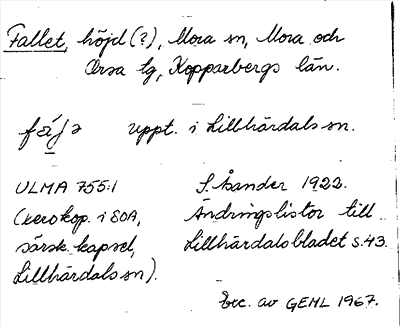 Fallet, höjd (?), Mora sn, Mora och
Orsa tg, Kopparbergs län.
uppt. i Lillhärdals sn.
ULMA 755:1
S. Åsander 1922.
(xerokop. i SOA,
Ändringslistor till
särsk kapsel,
Lillhärdalsbladet s.43.
Lillhärdals sn).
Exc. av GEHL 1967.